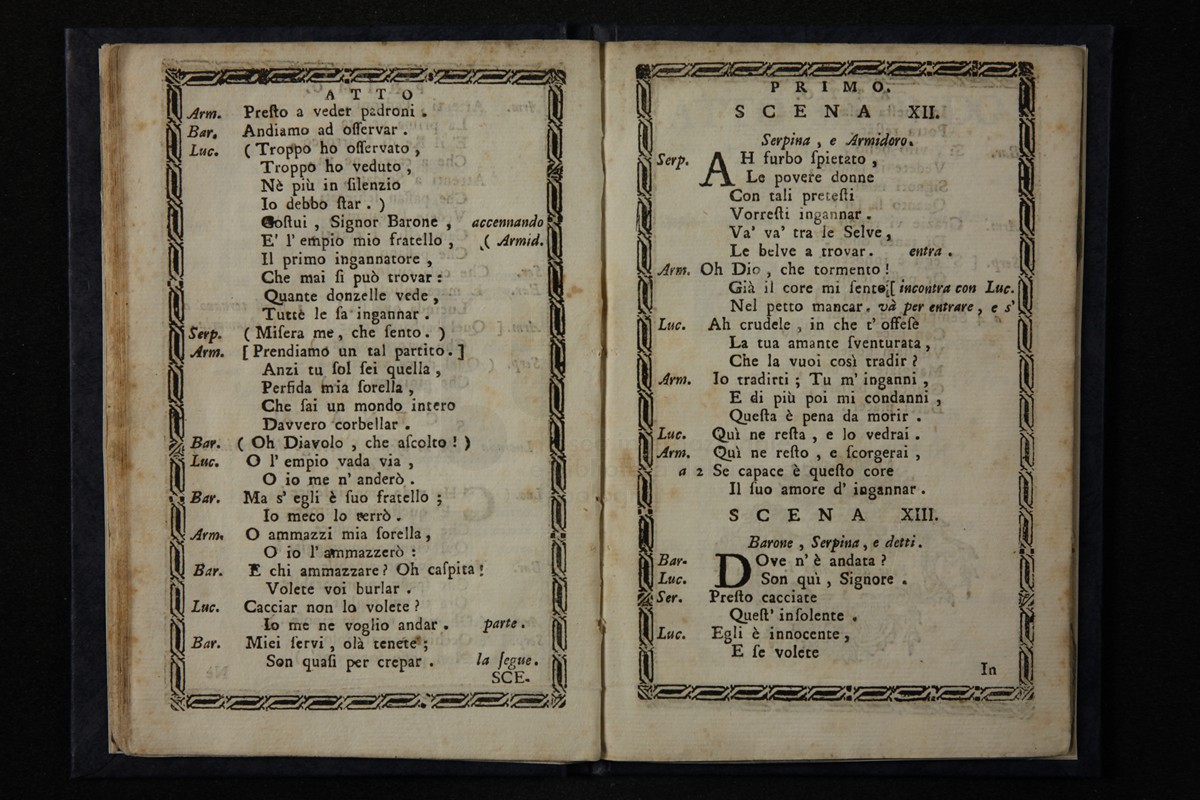 A T T O
Arm. Preſto a veder padroni .
Bar. Andiamo ad oſſervar .
Luc. ( Troppo ho oſſervato ,
Troppo ho veduto ,
Nè più in ſilenzio
Io debbo ſtar . )
Coſtui , Signor Barone , accennando
E' l' empio mio fratello , ( Armid.
Il primo ingannatore ,
Che mai ſi può trovar :
Quante donzelle vede ,
Tutte le fa ingannar .
Serp. ( Miſera me , che ſento . )
Arm. [ Prendiamo un tal partito . ]
Anzi tu ſol ſei quella ,
Perfida mia ſorella ,
Che fai un mondo intero
Davvero corbellar .
Bar. ( Oh Diavolo , che aſcolto ! )
Luc. O l' empio vada via ,
O io me n' anderò .
Bar. Ma s' egli è ſuo fratello ;
Io meco lo terrò .
Arm. O ammazzi mia ſorella ,
O io l' ammazzerò :
Bar. E chi ammazzare ? Oh caſpita !
Volete voi burlar .
Luc. Cacciar non lo volete ?
Io me ne voglio andar . parte .
Bar. Miei ſervi , olà tenete ;
Son quaſi per crepar . la ſegue .
SCE-
P R I M O .
S C E N A XII.
Serpina , e Armidoro .
Serp. AH furbo ſpietato ,
Le povere donne
Con tali preteſti
Vorreſti ingannar .
Va' va' tra le Selve ,
Le belve a trovar . entra .
Arm. Oh Dio , che tormento !
Già il core mi ſento [ incontra con Luc.
Nel petto mancar . và per entrare , e s'
Luc. Ah crudele , in che t' offeſe
La tua amante ſventurata ,
Che la vuoi così tradir ?
Arm. Io tradirti ; Tu m' inganni ,
E di più poi mi condanni ,
Queſta è pena da morir .
Luc. Quì ne reſta , e lo vedrai .
Arm. Quì ne reſto , e ſcorgerai ,
a 2 Se capace è queſto core
Il ſuo amore d' ingannar .
S C E N A XIII.
Barone , Serpina , e detti .
Bar. DOve n' è andata ?
Luc. Son quì , Signore .
Ser. Preſto cacciate
Queſt' inſolente .
Luc. Egli è innocente ,
E ſe volete
In